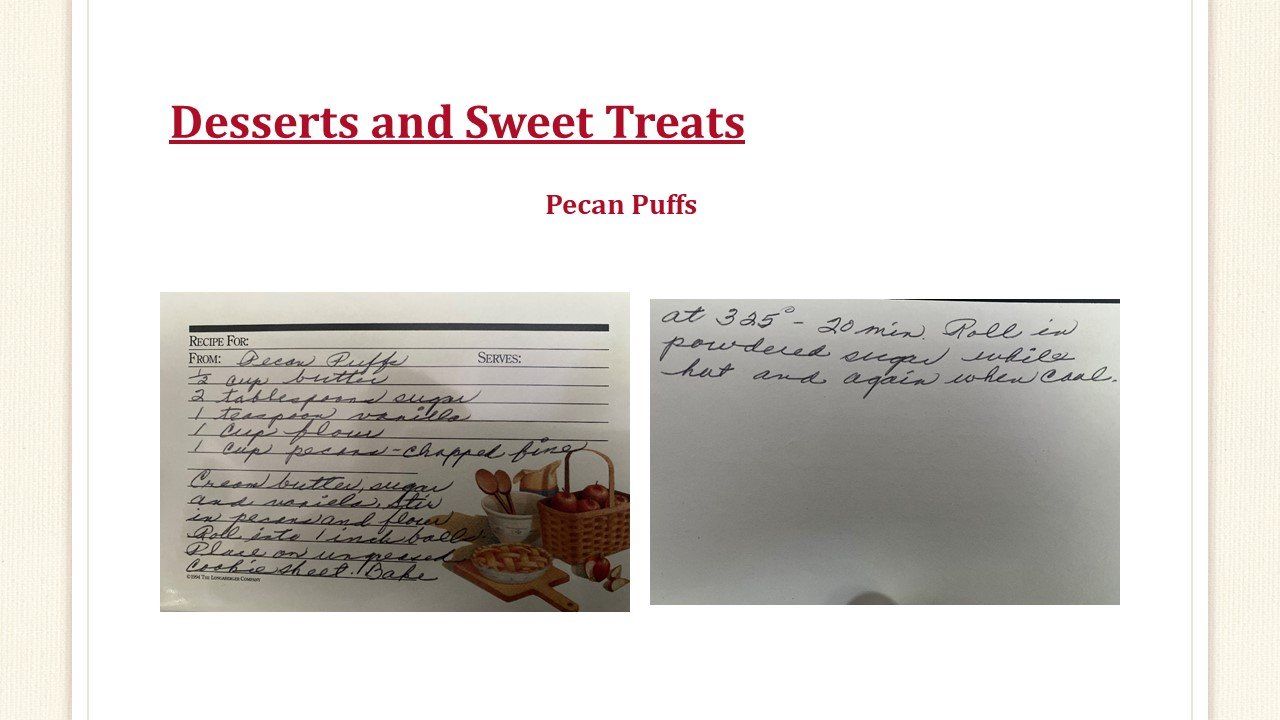 Desserts and Sweet Treats
Pecan Puffs
RECIPE FOR:
FROM: Pecan Puffs SERVES:
1/2 cup butter
2 tablespoons sugar
1 teaspoon vanilla
1 cup flour
1 cup pecans - chopped fine
Cream butter, sugar
and vanilla. Stir
in pecans and flour
Roll into 1 inch balls.
Place on ungreased
cookie sheet. Bake
©1994 THE LONGABERGER COMPANY
at 325° - 20 min. Roll in
powdered sugar while
hot and again when cool.